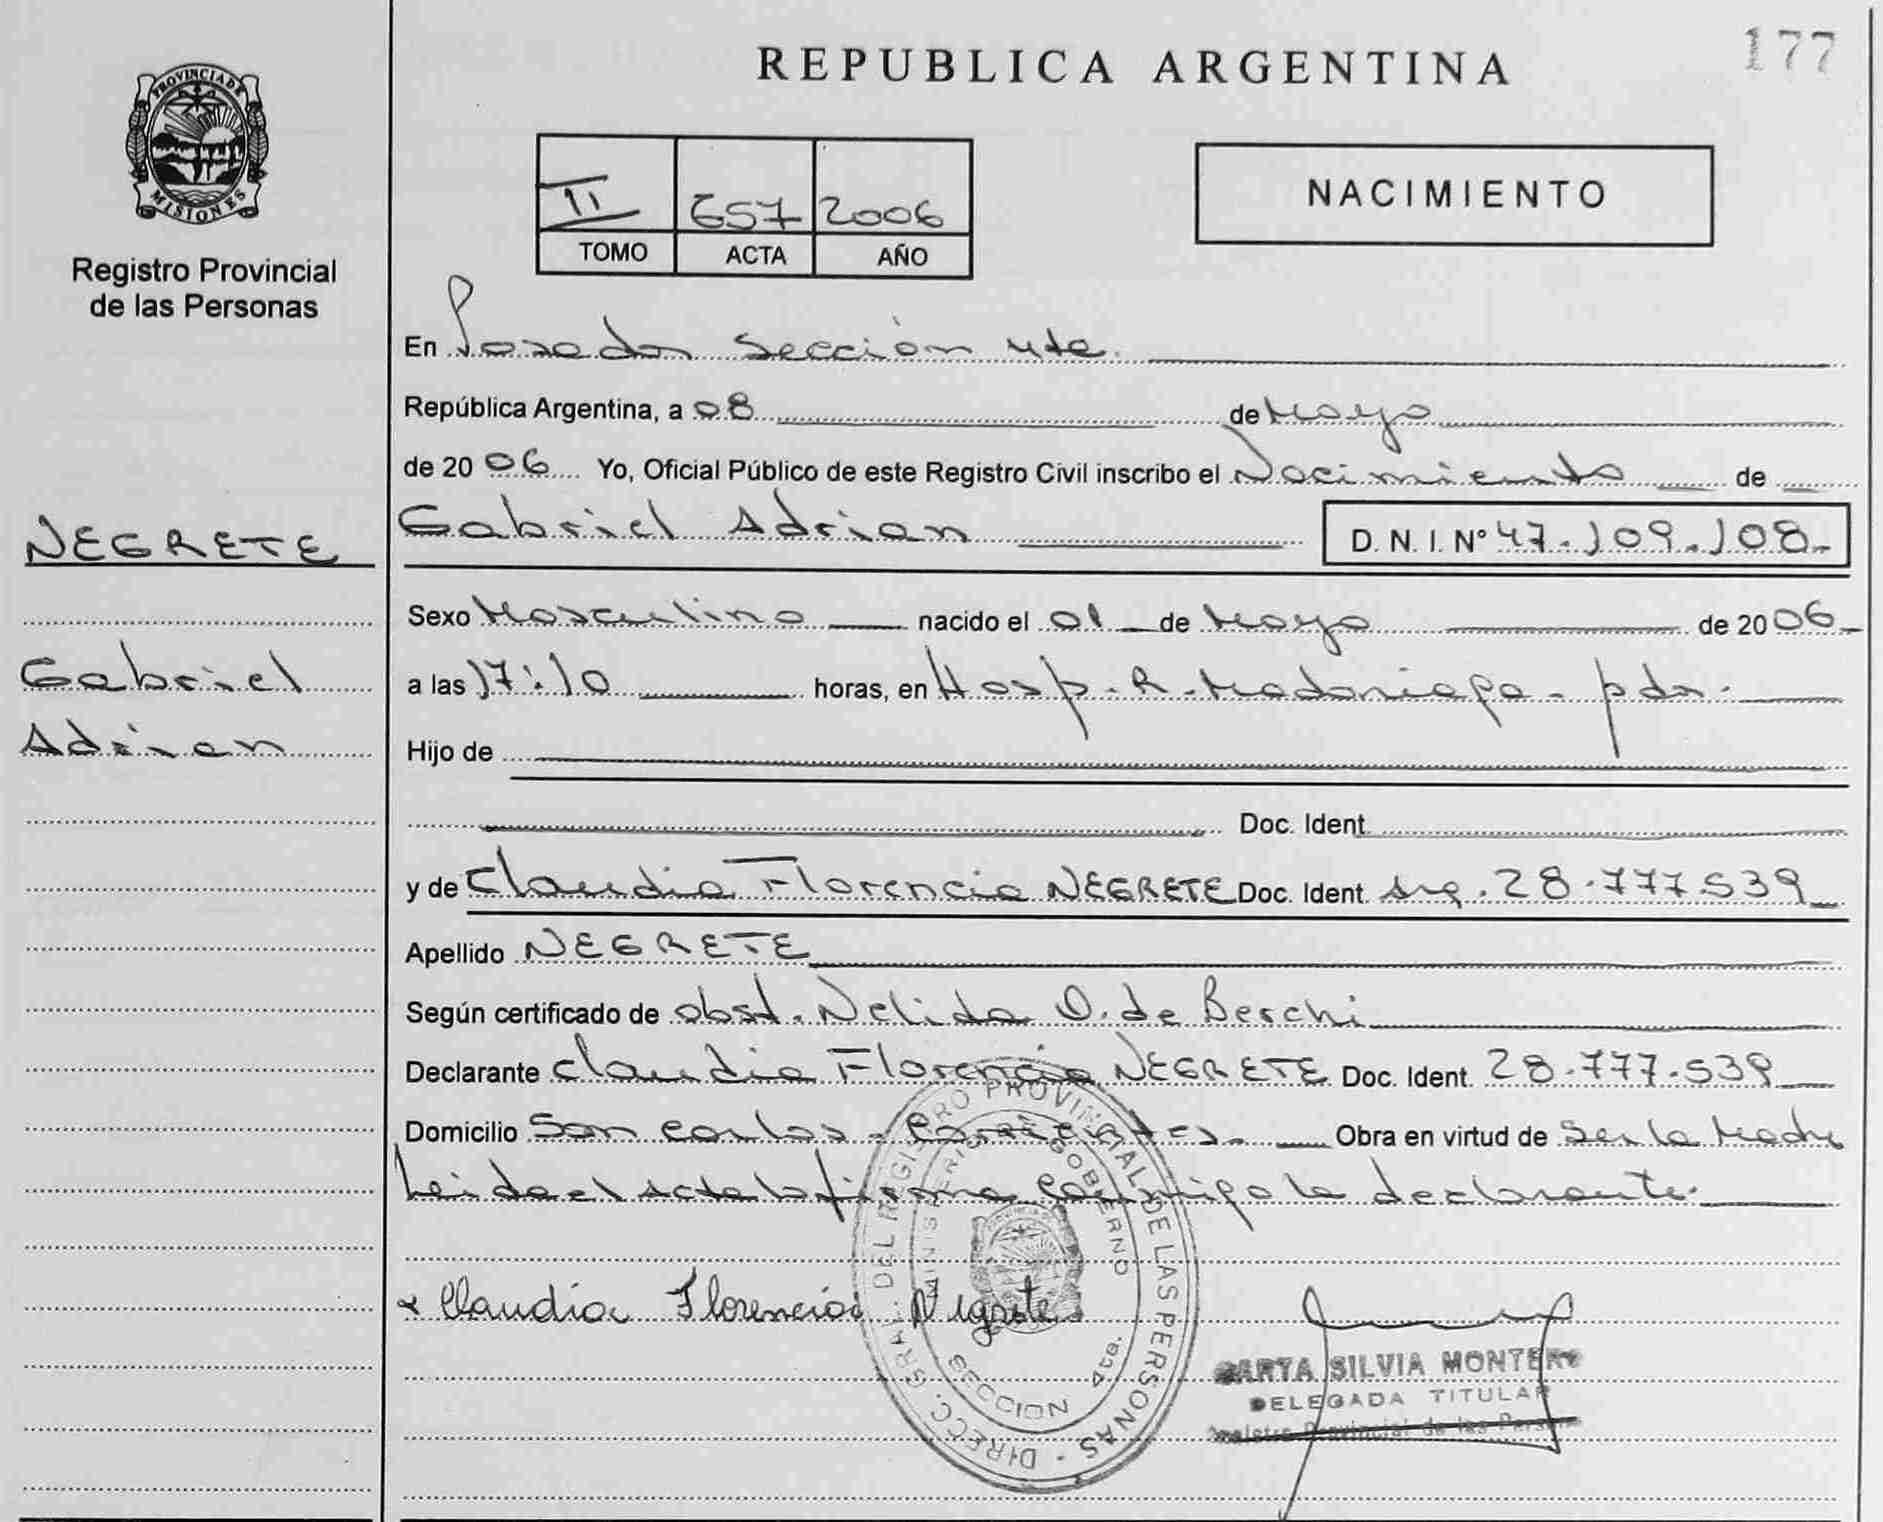 REPUBLICA ARGENTINA
177
PROVINCIA DE
MISIONES
Registro Provincial
de las Personas
II 657 2006
TOMO ACTA AÑO
NACIMIENTO
En Posadas Sección 4ta.
República Argentina, a 08 de Mayo
de 20 06 Yo, Oficial Público de este Registro Civil inscribo el Nacimiento de
NEGRETE
Gabriel Adrian
D. N. I. N° 47.109.108.-
Sexo Masculino nacido el 01 de Mayo de 20 06
Gabriel
Adrian
a las 17:10 horas, en Hosp. R. Madariaga - pdas.
Hijo de
Doc. Ident.
y de Claudia Florencia NEGRETE Doc. Ident. arg. 28.777.539
Apellido NEGRETE
Según certificado de obst. Nelida O. de Berchi
Declarante Claudia Florencia NEGRETE Doc. Ident. 28.777.539
Domicilio San Carlos - Corrientes. Obra en virtud de Ser la Madre
Leida el acta la firma conmigo la declarante.
Claudia Florencia Negrete
DIRECC. GRAL. DEL REGISTRO PROVINCIAL DE LAS PERSONAS
MINISTERIO GOBIERNO
SECCION 4ta.
SILVIA MONTERO
DELEGADA TITULAR
Registro Provincial de las Personas